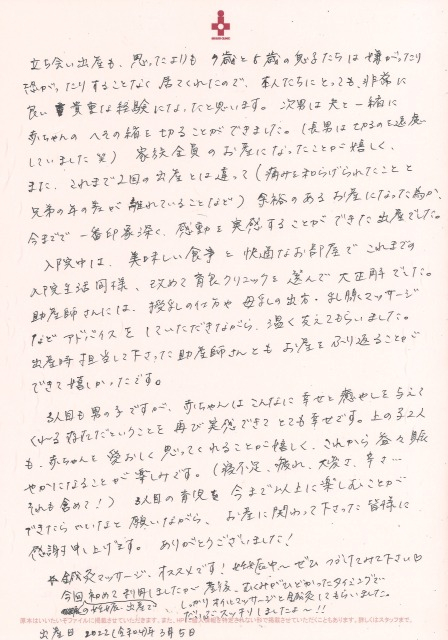 立ち会い出産も、思ったよりも 9歳と5歳の息子たちは 嫌がったり
恐がったりすることなく居てくれたので、本人たちにとっても、非常に
良い 貴重な経験になったと思います。次男は夫と一緒に
赤ちゃんの へその緒を切ることができました。(長男は切るのを遠慮
していました 笑) 家族全員の お産になったことが嬉しく、
また、これまで2回の出産とは違って (痛みを和らげられたことと
兄弟の年の差が 離れていることなど) 余裕の あるお産になった為か、
今までで 一番印象深く、感動を実感することが できた出産でした。
入院中は、美味しい食事と 快適なお部屋で これまでの
入院生活同様、改めて 育良クリニックを 選んで 大正解でした。
助産師さんには、授乳の仕方や 母乳の出方・乳腺マッサージ
など アドバイスを していただきながら、温く支えてもらいました。
出産時 担当して下さった 助産師さんとも お産をふり返ることが
できて 嬉しかったです。
3人目も男の子ですが、赤ちゃんは こんなに 幸せと癒やしを与えて
くれる存在だということを 再び実感できて とても幸せです。上の子2人
も、赤ちゃんを 愛おしく思ってくれることが嬉しく、これから 益々賑
やかになることが 楽しみです。(寝不足、疲れ、大変さ、辛さ…
それも含めて!) 3人目の育児を 今まで以上に楽しむことが
できたら いいなと 願いながら、お産に関わって下さった 皆様に
感謝申し上げます。ありがとうございました!
☆鍼灸マッサージ、オススメです! 妊娠中〜 ぜひ つづけてみて下さい♡
今回 初めて 利用しましたが〜 産後、むくみがひどかったタイミングで
の妊娠・出産で しっかりオイルマッサージと鍼灸してもらいました。
スッキリしましたよ〜!!
厚木はいいネイファイルに掲載させていただきます。また、HPで個人情報を特定されない形で掲載させていただくこともあります。詳しくはスタッフまで。
出産日 2022(令和4)年 3月 5日